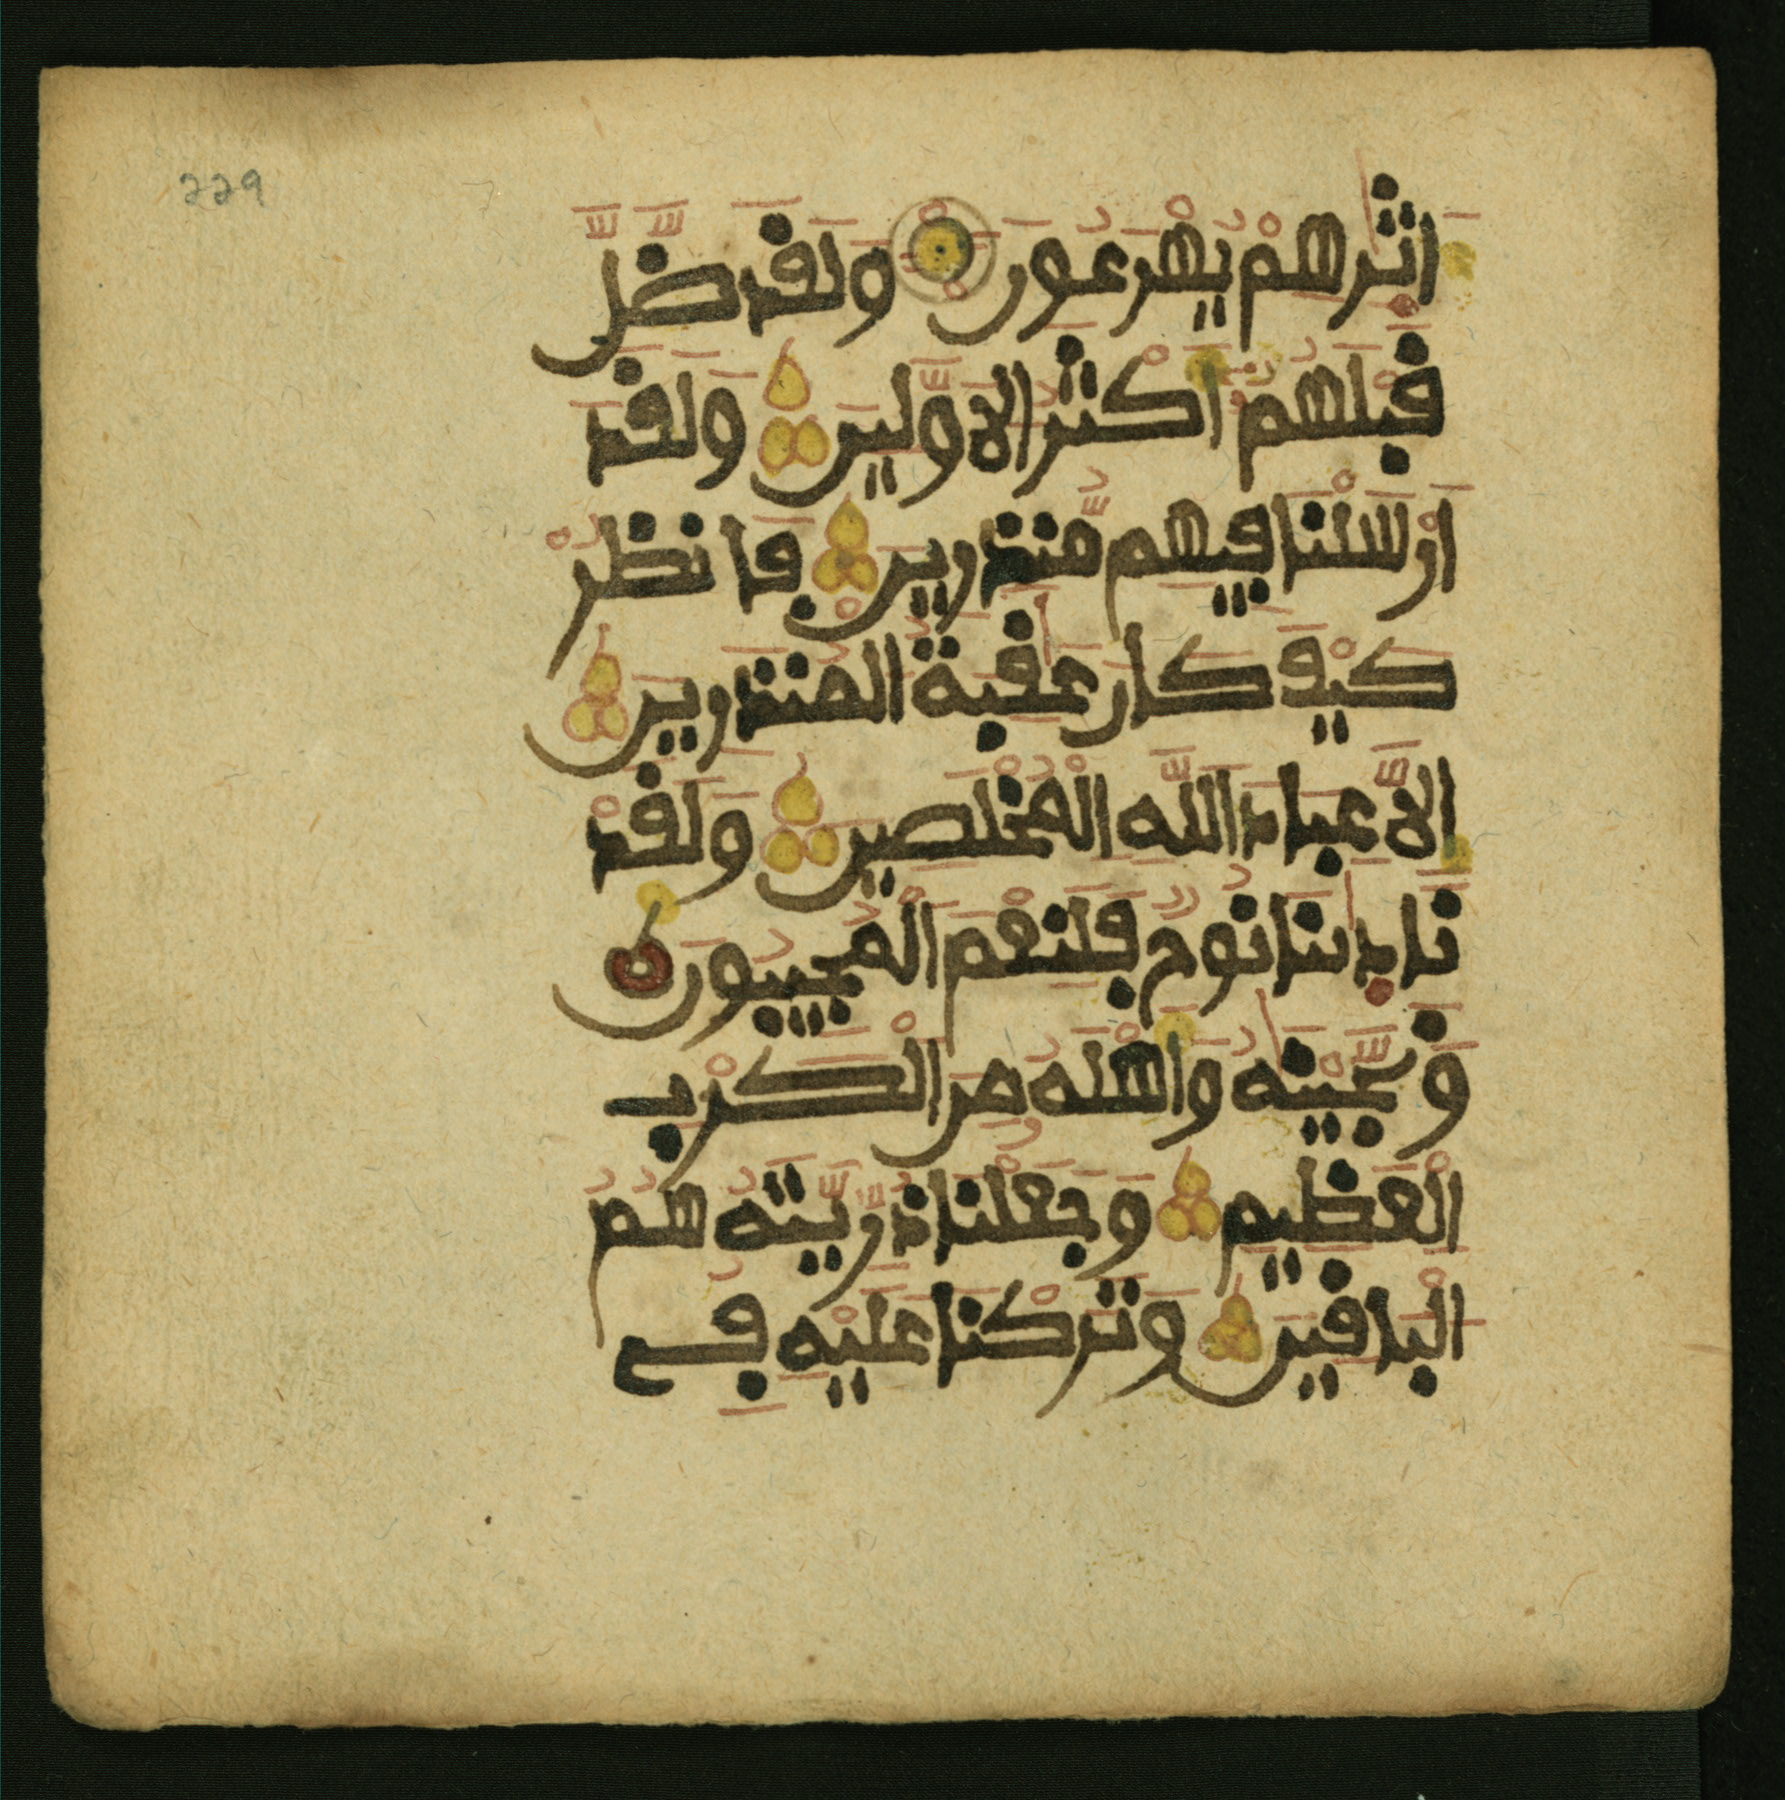 229
اثٰرهِمْ يُهْرَعُونَ وَلَقَدضَّلَّ
قَبْلَهُمُۥ أَكْثَرُ الاَوَّلِينَ وَلَقَدَ
ارْسَلْنَا فِيهِم مُّنذِرِينَ فَانظُرْ
كَيْفَ كَانَ عَٰقِبَةُ الْمُنذَرِينَ
إِلاَّ عِبَادَ اَللَّهِ الْمُخْلَصِينَ وَلَقَدْ
نَادَىٰنَا نُوحٌ فَلَنِعْمَ الْمُجِيبُونَ
وَنَجَّيْنَٰهُ وَأَهْلَهُ مِنَ الْكَرْبِ
الْعَظِيمِ وَجَعَلْنَا ذُرِّيَّتَهُ هُمُ
الْبَاقِينَ وَتَرَكْنَا عَلَيْهِ فِے